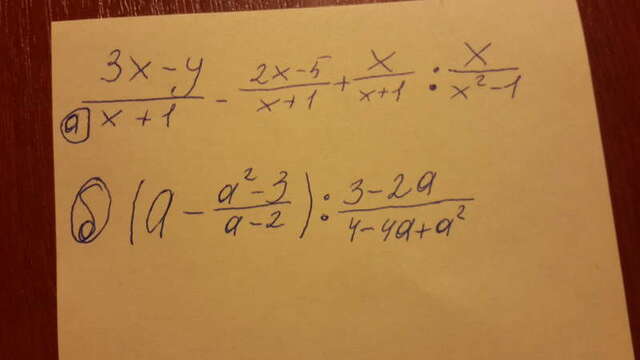 а) (3x-y)/(x+1) - (2x-5)/(x+1) + x/(x+1) : x/(x²-1)
б) (a - (a²-3)/(a-2)) : (3-2a)/(4-4a+a²)